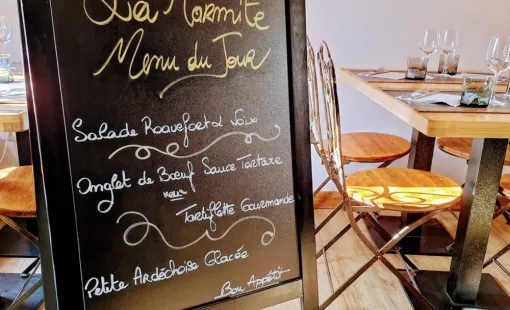 La Marmite
Menu du Jour
Salade Roquefort & Noix
Onglet de Boeuf Sauce Tartare
ou
Tartiflette Gourmande
Petite Ardéchoise Glacée
Bon Appétit